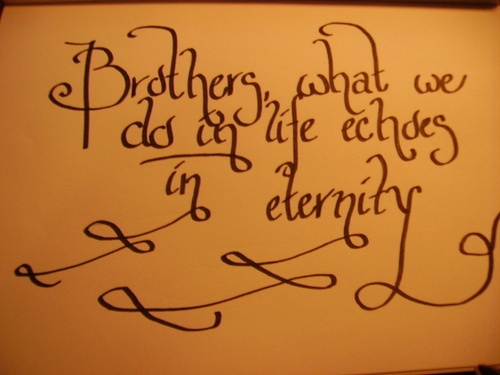 Brothers, what we
do in life echoes
in eternity